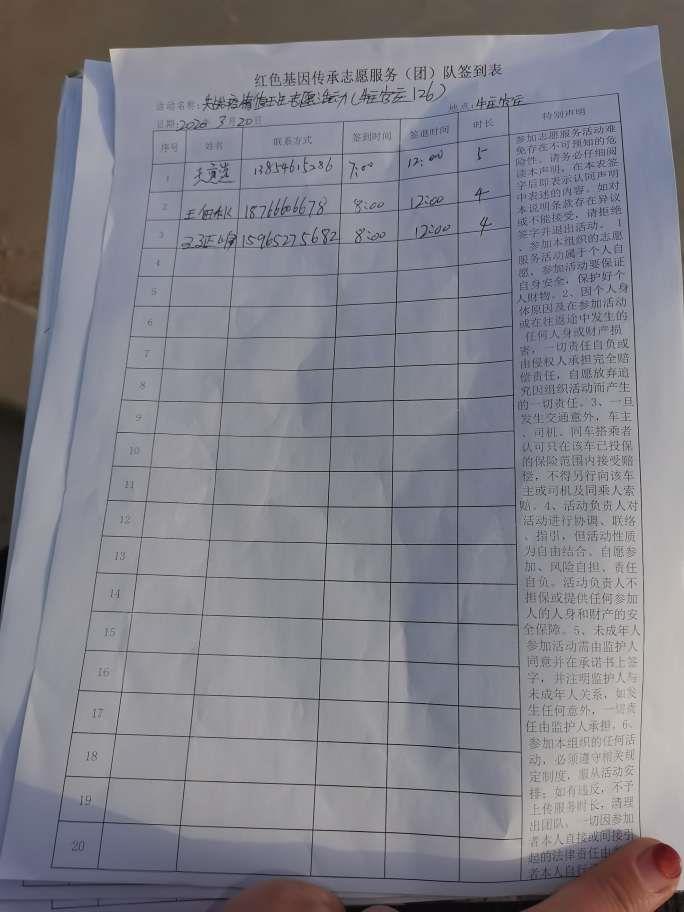 红色基因传承志愿服务（团）队签到表
活动名称: 志愿活动(牛庄农庄126)
日期: 2020年3月20日 地点:牛庄农庄
序号 姓名 联系方式 签到时间 签退时间 时长 特别声明
1 13854615286 7:00 12:00 5
2 王 18766606678 8:00 12:00 4
3 15965275682 8:00 12:00 4
4
5
6
7
8
9
10
11
12
13
14
15
16
17
18
19
20
参加志愿服务活动难
免存在不可预知的危
险性。请务必仔细阅
读本声明，在本表签
字后即表示认同声明
中表述的内容。如对
本说明条款存在异议
或不能接受，请拒绝
签字并退出活动。 1
、参加本组织的志愿
服务活动属于个人自
愿，参加活动要保证
自身安全，保护好个
人财物。2、因个人身
体原因及在参加活动
或在往返途中发生的
任何人身或财产损
害，一切责任自负或
由侵权人承担完全赔
偿责任，自愿放弃追
究因组织活动而产生
的一切责任。3、一旦
发生交通意外，车主
、司机、同车搭乘者
认可只在该车已投保
的保险范围内接受赔
偿，不得另行向该车
主或司机及同乘人索
赔。4、活动负责人对
活动进行协调、联络
、指引，但活动性质
为自由结合、自愿参
加、风险自担、责任
自负。活动负责人不
担保或提供任何参加
人的人身和财产的安
全保障。5、未成年人
参加活动需由监护人
同意并在承诺书上签
字，并注明监护人与
未成年人关系，如发
生任何意外，一切责
任由监护人承担。6、
参加本组织的任何活
动，必须遵守相关规
定制度，服从活动安
排；如有违反，不予
上传服务时长，清理
出团队。一切因参加
者本人直接或间接引
起的法律责任由
者本人自行